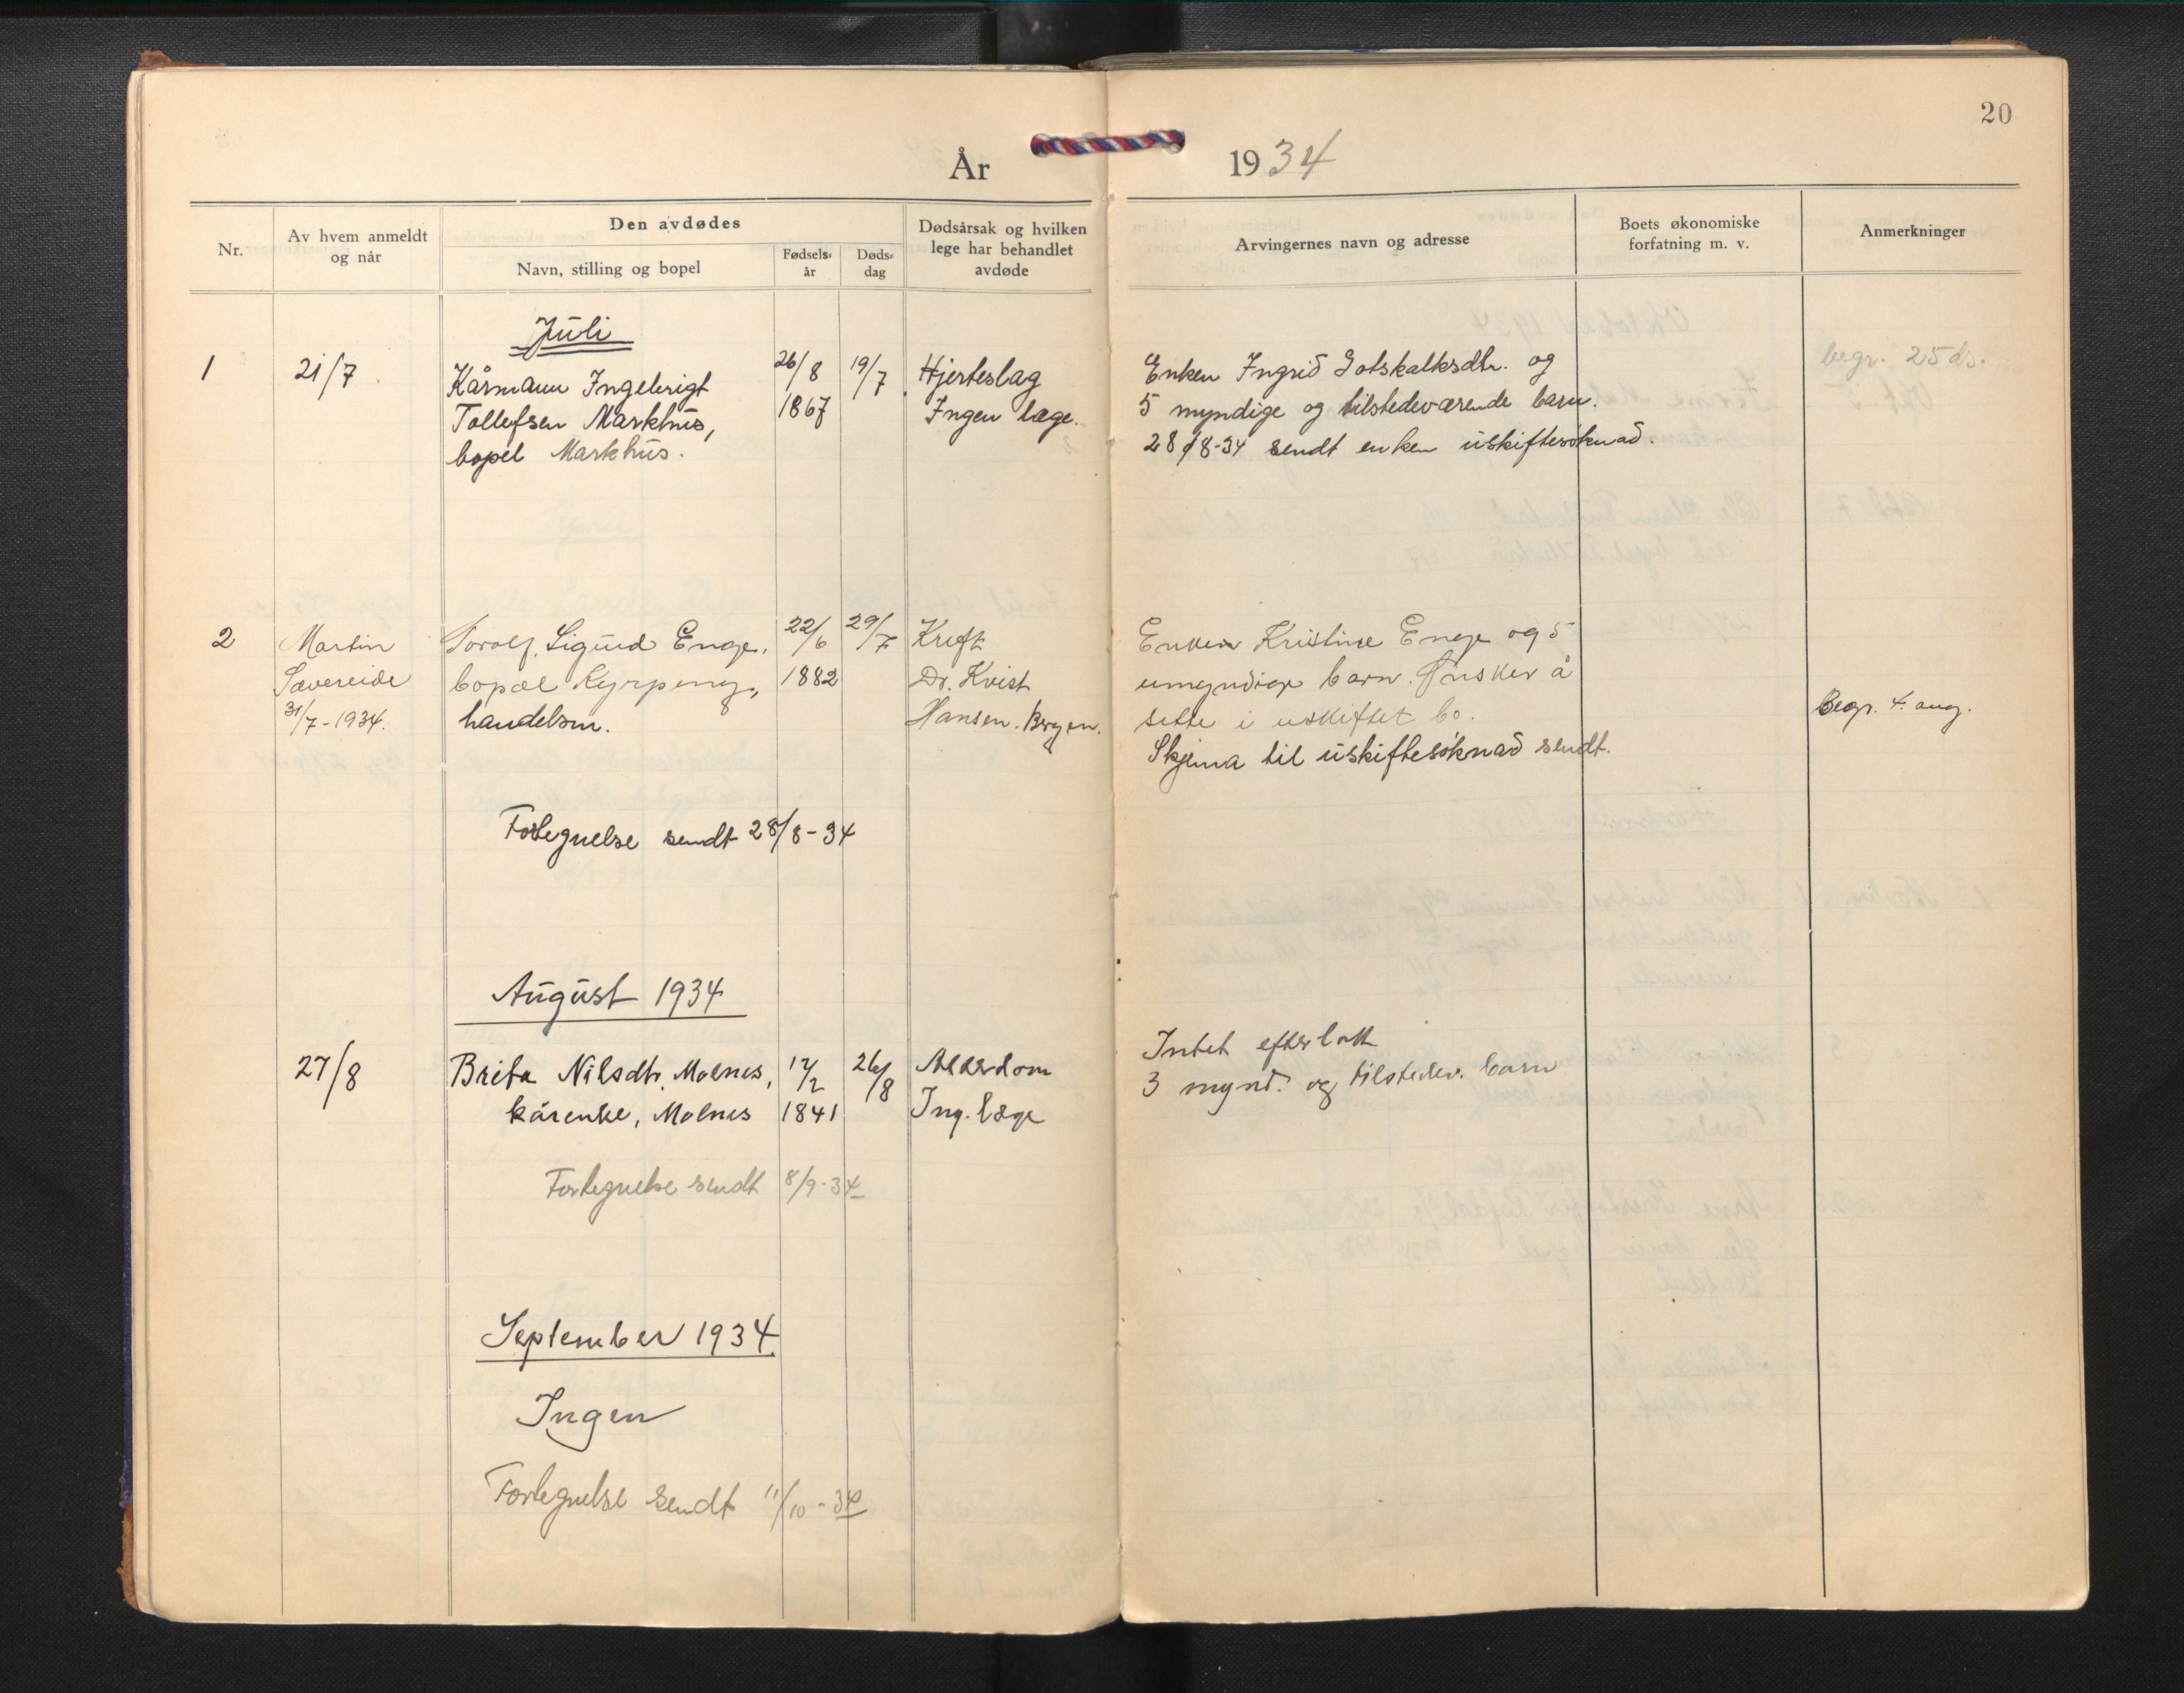 20
År 1934
Nr.
Av hvem anmeldt
og når
Den avdødes
Navn, stilling og bopel
Fødsels-
år
Døds-
dag
Dødsårsak og hvilken
lege har behandlet
avdøde
Arvingernes navn og adresse
Boets økonomiske
forfatning m. v.
Anmerkninger
Juli
1
21/7
Kårmann Ingebrigt
Tollefsen Markhus,
bopel Markhus.
26/8
1867
19/7
Hjerteslag
Ingen læge.
Enken Ingrid Gotskalksdtr. og
5 myndige og tilstedeværende barn.
28/8-34 sendt enken uskiftesøknad.
begr. 25 ds.
2
Martin
Sævereide
31/7-1934.
Torolf Sigurd Enge,
bopæl Kyrping,
handelsm.
22/6
1882
29/7
Kreft
Dr. Kvist
Hansen. Bergen.
Enken Kristine Enge og 5
umyndige barn. Ønsker å
sitte i uskiftet bo.
Skjema til uskiftesøknad sendt.
Begr. 4. aug.
Fortegnelse sendt 28/8-34
August 1934
27/8
Brita Nilsdtr. Molnes,
kårenke, Molnes
1841
26/8
Alderdom
Ing. læge
Intet efterlatt
3 mynd. og tilstedev. barn
Fortegnelse sendt 8/9-34
September 1934
Ingen
Fortegnelse sendt 11/10-34